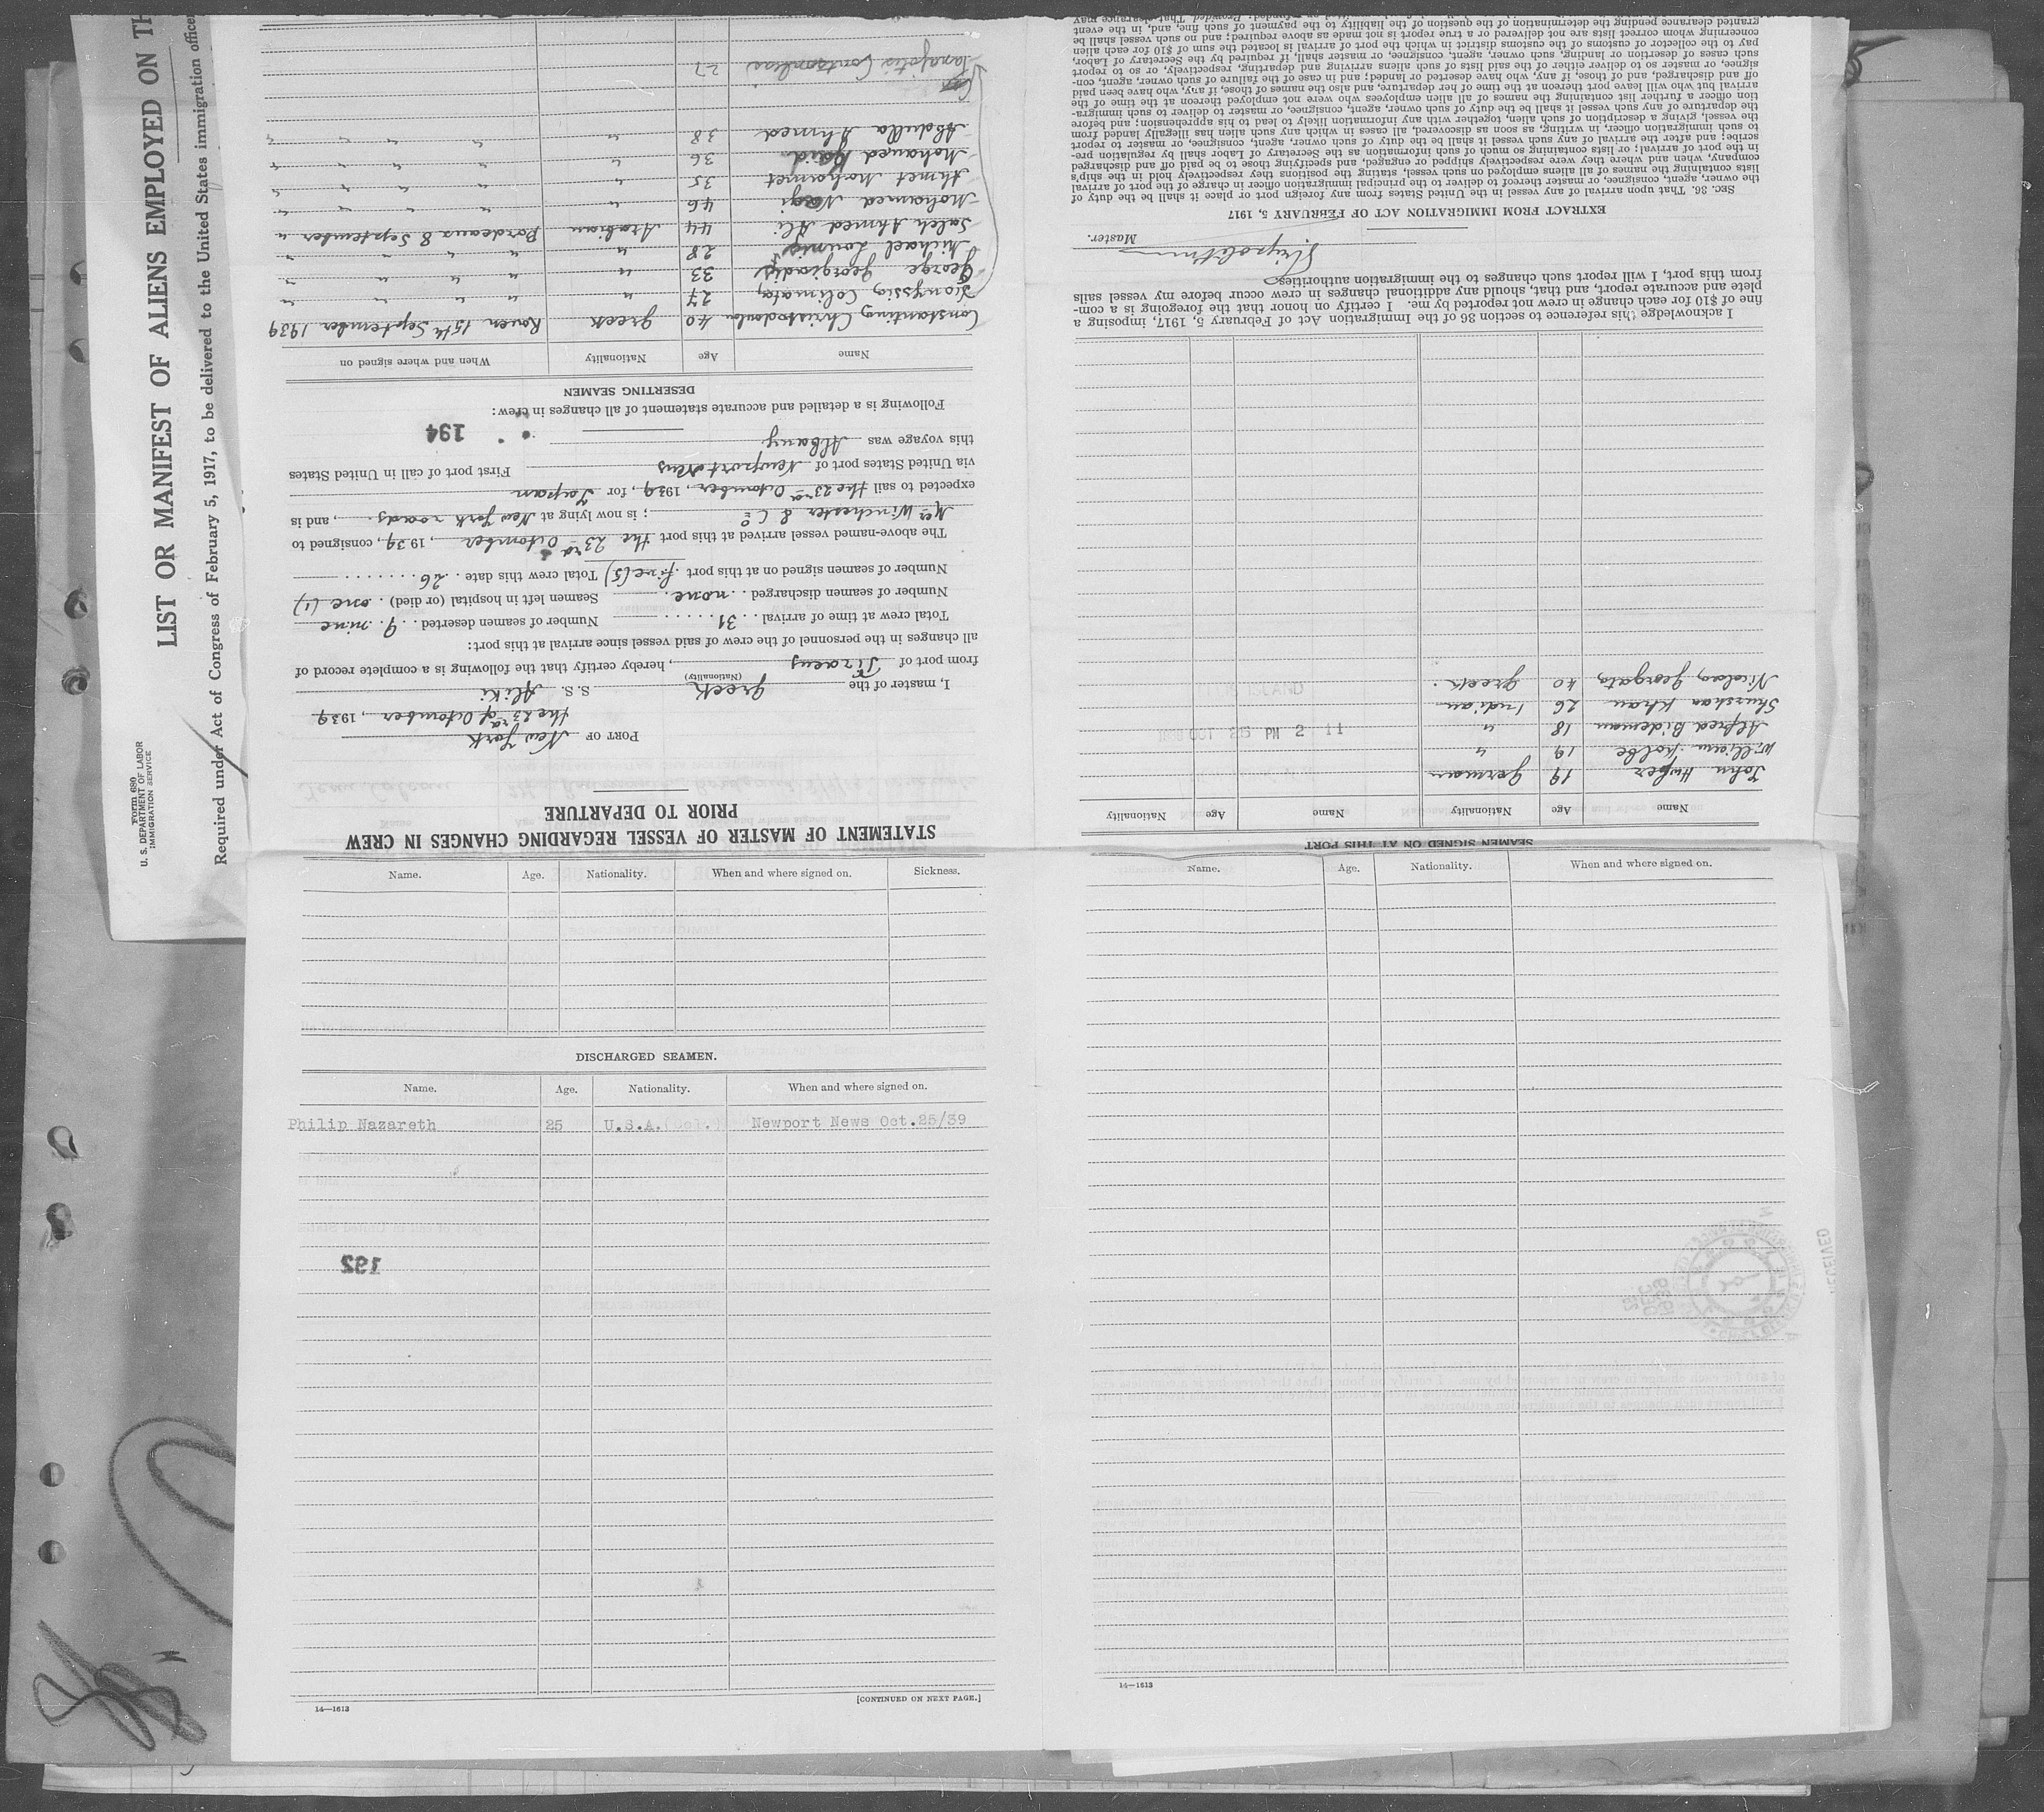 Form 680
U. S. DEPARTMENT OF LABOR
IMMIGRATION SERVICE
LIST OR MANIFEST OF ALIENS EMPLOYED ON TH
Required under Act of Congress of February 5, 1917, to be delivered to the United States immigration officer
STATEMENT OF MASTER OF VESSEL REGARDING CHANGES IN CREW
PRIOR TO DEPARTURE
PORT OF New York
the 23rd of Octomber, 1939
I, master of the Greek S. S. Aliki
(Nationality)
from port of Piraeus, hereby certify that the following is a complete record of
all changes in the personnel of the crew of said vessel since arrival at this port:
Total crew at time of arrival 31 Number of seamen deserted 9 nine
Number of seamen discharged none Seamen left in hospital (or died) one (1)
Number of seamen signed on at this port five (5) Total crew this date 26
The above-named vessel arrived at this port the 23rd Octomber, 1939, consigned to
Mrs Winchester & Co; is now lying at New York roads, and is
expected to sail the 23rd Octomber, 1939, for Japan
via United States port of Newport News First port of call in United States
this voyage was Albany
194
Following is a detailed and accurate statement of all changes in crew:
DESERTING SEAMEN
Name Age Nationality When and where signed on
Constantinos Christodoulou 40 Greek Rouen 15th September 1939
Dionyssios Colimatas 27 " " " " "
George Georgiadis 33 " " " " "
Michael 28 " " " " "
Saleh Ahmed Ali 44 Arabian Bordeaux 8 September "
Mohamed Nagi 46 " " " " "
Ahmet Mohamet 35 " " " " "
Mohamed Said 36 " " " " "
Abdulla Ahmed 38 " " " " "
Panagiotis 27
SEAMEN SIGNED ON AT THIS PORT
Name Age Nationality Name Age Nationality
John Huber 19 German
William Kolbe 19 "
Alfred Bideman 18 "
Khan 26 Indian
Nicolaos Georgatos 40 Greek.
I acknowledge this reference to section 36 of the Immigration Act of February 5, 1917, imposing a
fine of $10 for each change in crew not reported by me. I certify on honor that the foregoing is a com-
plete and accurate report, and that, should any additional changes in crew occur before my vessel sails
from this port, I will report such changes to the immigration authorities.
Master.
EXTRACT FROM IMMIGRATION ACT OF FEBRUARY 5, 1917
SEC. 36. That upon arrival of any vessel in the United States from any foreign port or place it shall be the duty of
the owner, agent, consignee, or master thereof to deliver to the principal immigration officer in charge of the port of arrival
lists containing the names of all aliens employed on such vessel, stating the positions they respectively hold in the ship's
company, when and where they were respectively shipped or engaged, and specifying those to be paid off and discharged
in the port of arrival; or lists containing so much of such information as the Secretary of Labor shall by regulation pre-
scribe; and after arrival of any such vessel it shall be the duty of such owner, agent, consignee, or master to report
to such immigration officer, in writing, as soon as discovered, all cases in which any such alien has illegally landed from
the vessel, giving a description of such alien, together with any information likely to lead to his apprehension; and before
the departure of any such vessel it shall be the duty of such owner, agent, consignee, or master to deliver to such immigra-
tion officer a further list containing the names of all alien employees who were not employed thereon at the time of the
arrival but who will leave port thereon at the time of her departure, and also the names of those, if any, who have been paid
off and discharged, and of those, if any, who have deserted or landed; and in case of the failure of such owner, agent, con-
signee, or master so to deliver either of the said lists of such aliens arriving and departing, respectively, or so to report
such cases of desertion or landing, such owner, agent, consignee, or master shall, if required by the Secretary of Labor,
pay to the collector of customs of the customs district in which the port of arrival is located the sum of $10 for each alien
concerning whom correct lists are not delivered or a true report is not made as above required; and no such vessel shall be
granted clearance pending the determination of the question of the liability to the payment of such fine, and, in the event
Name. Age. Nationality. When and where signed on. Sickness.
DISCHARGED SEAMEN.
Name. Age. Nationality. When and where signed on.
Philip Nazareth 25 U.S.A.(Col.) Newport News Oct.25/39
192
14—1613
[CONTINUED ON NEXT PAGE.]
Name. Age. Nationality. When and where signed on.
RECEIVED
14—1613